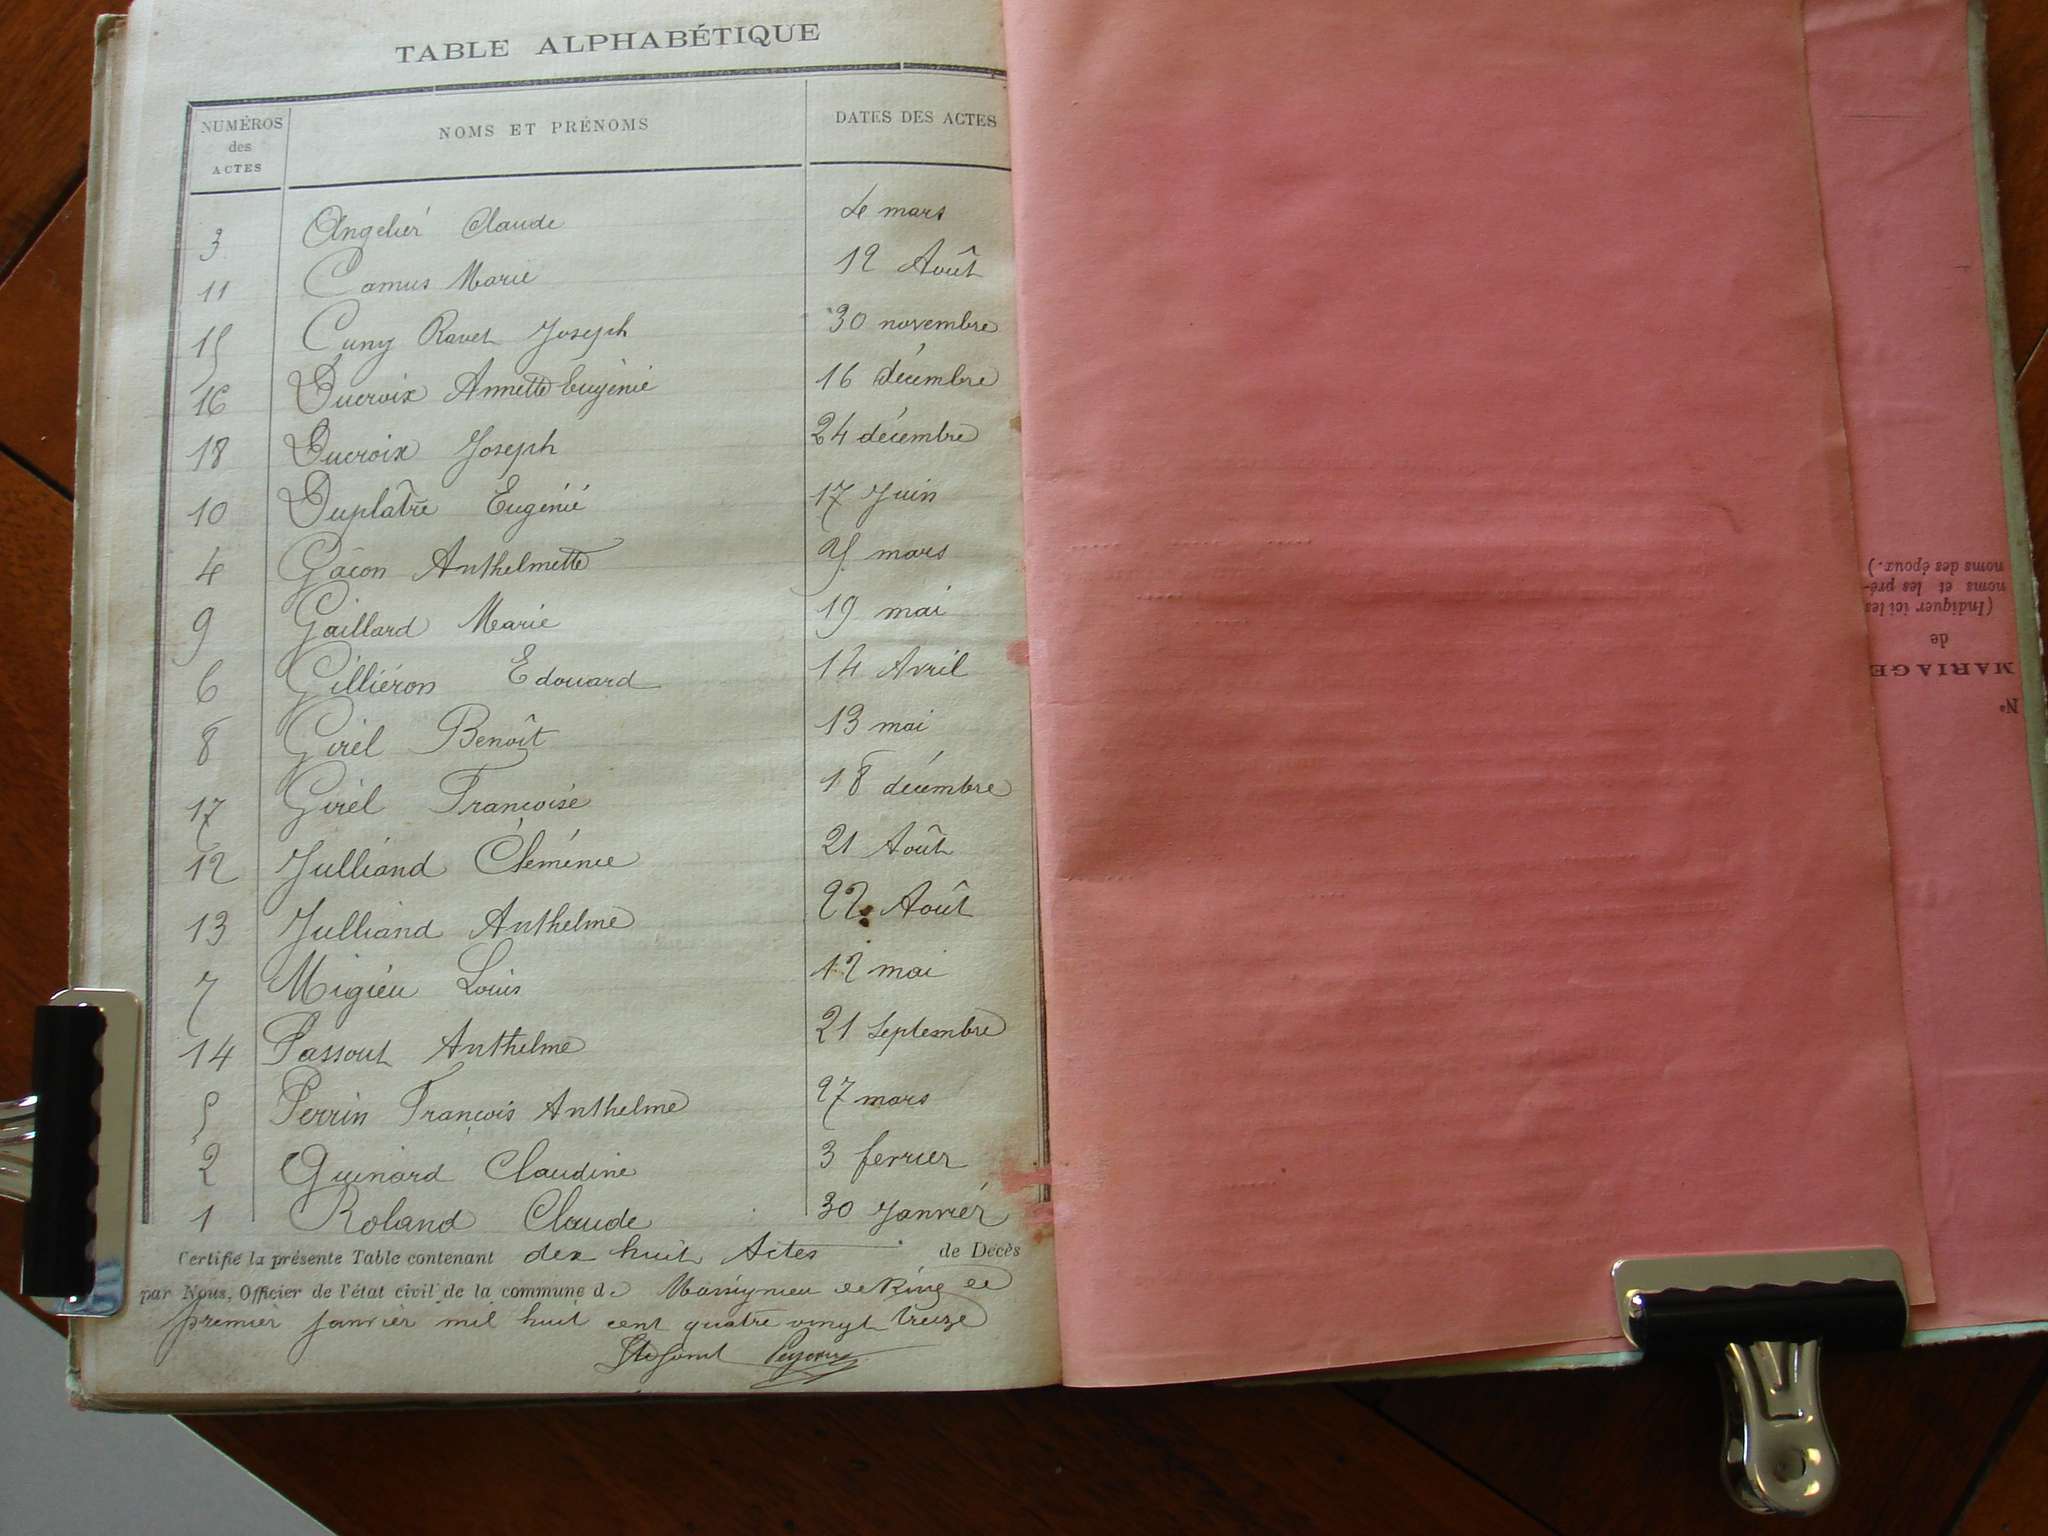 TABLE ALPHABÉTIQUE
NUMÉROS des ACTES NOMS ET PRÉNOMS DATES DES ACTES
3 Angelier Claude 4 mars
11 Camus Marie 12 Août
15 Cuny Ravet Joseph 30 novembre
16 Ducroix Annette Eugénie 16 décembre
18 Ducroix Joseph 24 décembre
10 Duplâtre Eugénie 17 Juin
4 Gâcon Anthelmette 25 mars
9 Gaillard Marie 19 mai
6 Gilliéron Edouard 14 Avril
8 Girel Benoît 13 mai
17 Girel Françoise 18 décembre
12 Julliand Clémence 21 Août
13 Julliand Anthelme 22 Août
7 Migieu Louis 12 mai
14 Passout Anthelme 21 Septembre
5 Perrin François Anthelme 27 mars
2 Quinard Claudine 3 fevrier
1 Roland Claude 30 Janvier
Certifié la présente Table contenant dix huit Actes de Décès
par Nous, Officier de l'état civil de la commune de Massignieu de Rives le
premier janvier mil huit cent quatre vingt treize
Nº
MARIAGE
de
(Indiquer ici les
noms et les pré-
noms des époux.)